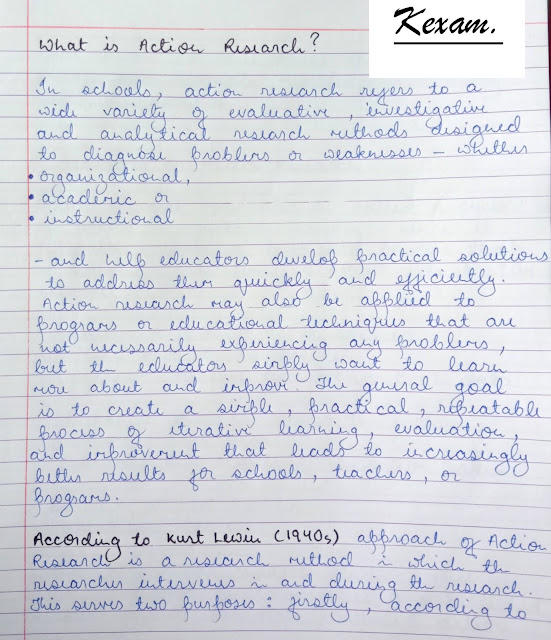 Kexam.
What is Action Research?
In schools, action research refers to a
wide variety of evaluative, investigative
and analytical research methods designed
to diagnose problems or weaknesses – whether
• organizational,
• academic or
• instructional
- and help educators develop practical solutions
to address them quickly and efficiently.
Action research may also be applied to
programs or educational techniques that are
not necessarily experiencing any problems,
but the educators simply want to learn
more about and improve. The general goal
is to create a simple, practical, repeatable
process of iterative learning, evaluation,
and improvement that leads to increasingly
better results for schools, teachers, or
programs.
According to Kurt Lewin (1940s) approach of Action
Research is a research method in which the
researcher intervenes in and during the research.
This serves two purposes: firstly, according to